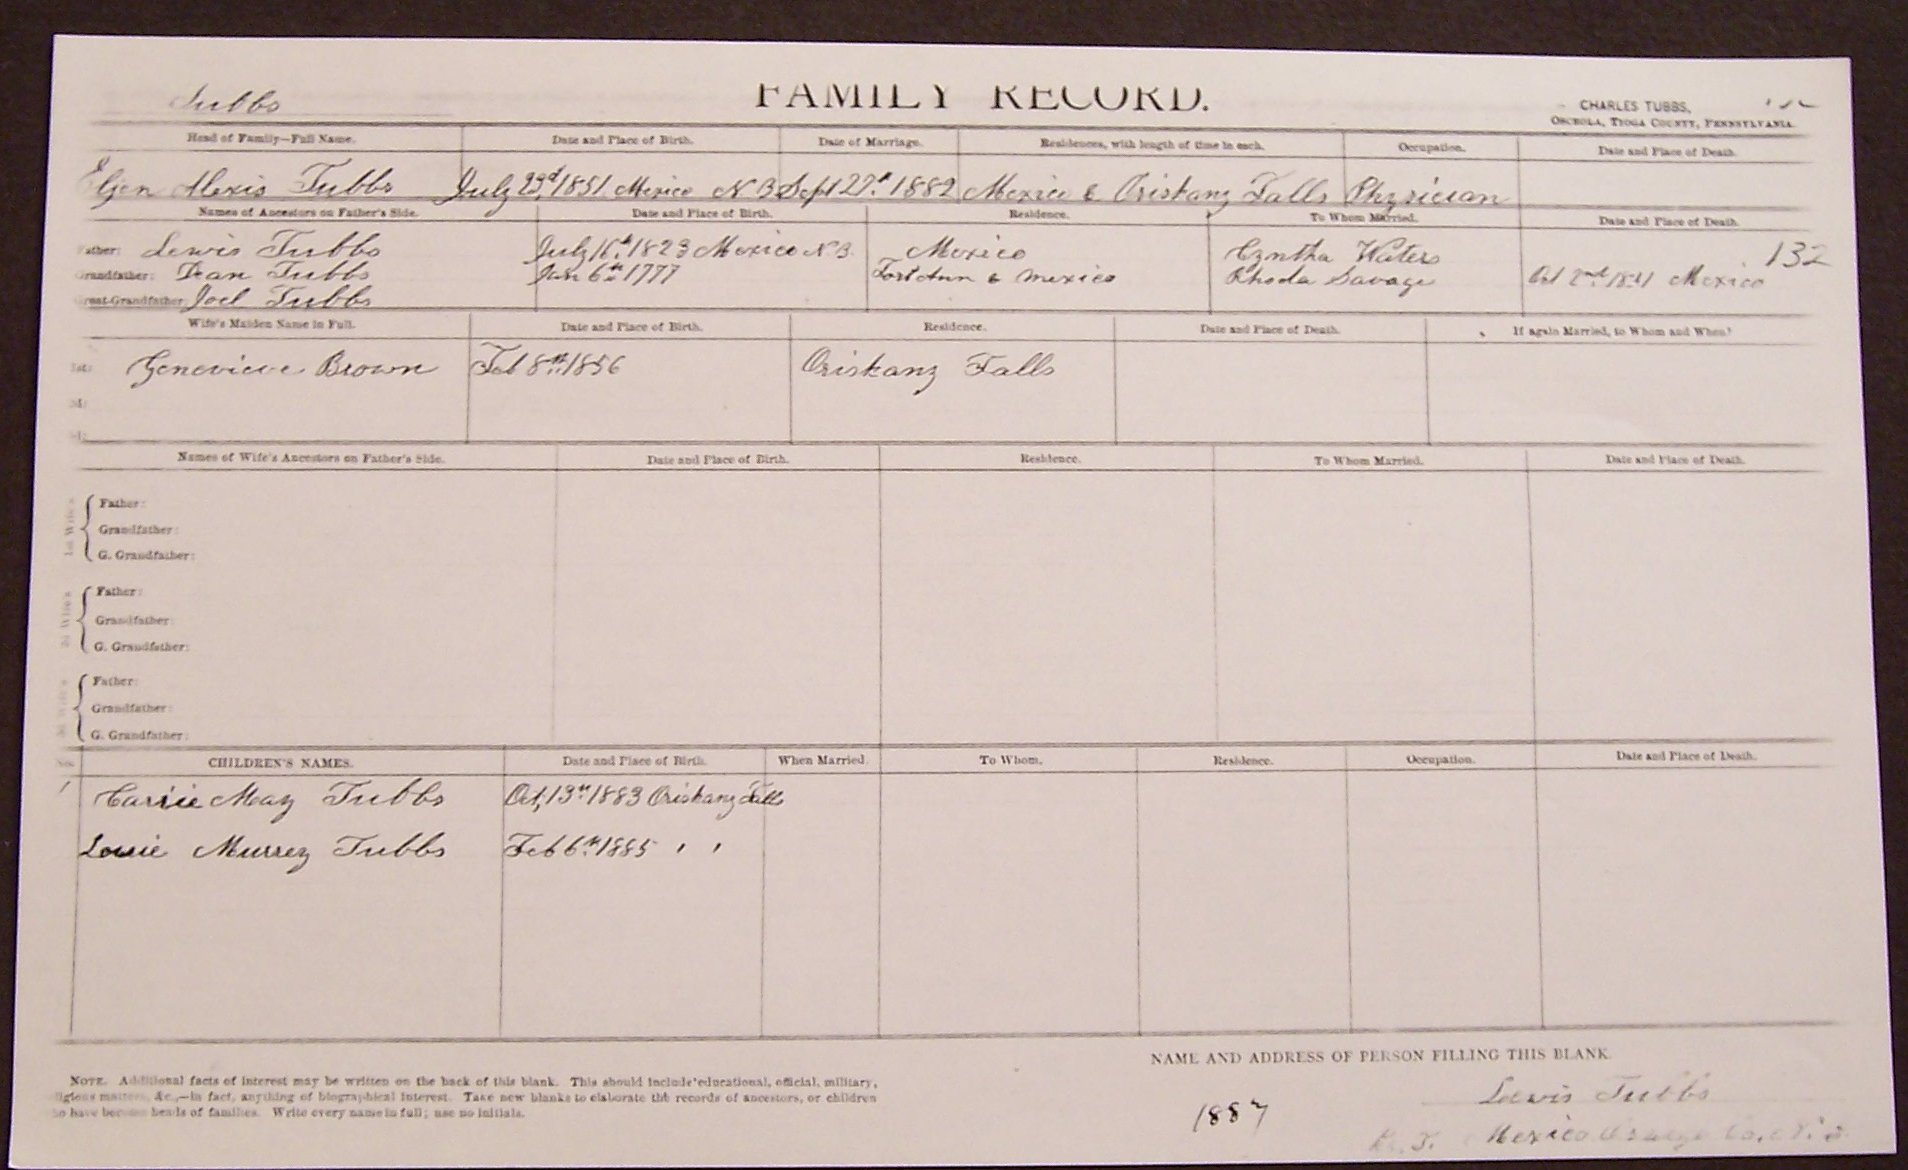 Tubbs
FAMILY RECORD.
CHARLES TUBBS,
OSCEOLA, TIOGA COUNTY, PENNSYLVANIA.
Head of Family—Full Name. Date and Place of Birth. Date of Marriage. Residences, with length of time in each. Occupation. Date and Place of Death.
Alexis Tubbs July 23d 1851 Mexico N Sept 27th 1882 Mexico & Oriskany Falls Physician
Names of Ancestors on Father's Side. Date and Place of Birth. Residence. To Whom Married. Date and Place of Death.
Father: Lewis Tubbs July 16th 1823 Mexico N Mexico Cyntha Waters 132
Grandfather: Dean Tubbs Jan 6th 1777 Fort Ann & Mexico Rhoda Savage Oct 2nd Mexico
Great-Grandfather: Joel Tubbs
Wife's Maiden Name in Full. Date and Place of Birth. Residence. Date and Place of Death. If again Married, to Whom and When?
1st: Genevieve Brown Feb 8th 1856 Oriskany Falls
2d:
3d:
Names of Wife's Ancestors on Father's Side. Date and Place of Birth. Residence. To Whom Married. Date and Place of Death.
1st Wife's
Father:
Grandfather:
G. Grandfather:
2d Wife's
Father:
Grandfather:
G. Grandfather:
3d Wife's
Father:
Grandfather:
G. Grandfather:
No. CHILDREN'S NAMES. Date and Place of Birth. When Married. To Whom. Residence. Occupation. Date and Place of Death.
1 Carrie May Tubbs Oct, 13th 1883 Oriskany Falls
Murrey Tubbs Feb 6th 1885 " "
NAME AND ADDRESS OF PERSON FILLING THIS BLANK.
NOTE. Additional facts of interest may be written on the back of this blank. This should include educational, official, military,
religious matters, &c.,—in fact, anything of biographical interest. Take new blanks to elaborate the records of ancestors, or children
who have become heads of families. Write every name in full; use no initials.
Lewis Tubbs
1887
Mexico Co.